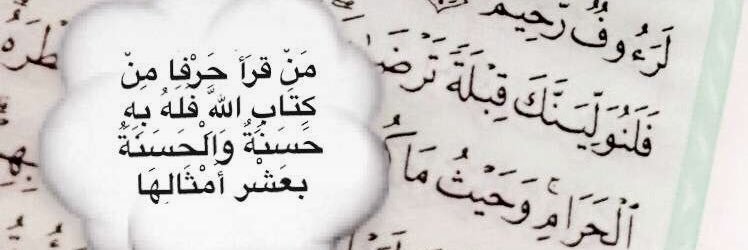 مَنْ قَرَأَ حَرْفًا مِنْ
كِتَابِ اللَّهِ فَلَهُ بِهِ
حَسَنَةٌ وَالْحَسَنَةُ
بِعَشْرِ أَمْثَالِهَا
لَرَءُوفٌ رَّحِيمٌ
فَلَنُوَلِّيَنَّكَ قِبْلَةً تَرْضَا
الْحَرَامِ وَحَيْثُ مَا